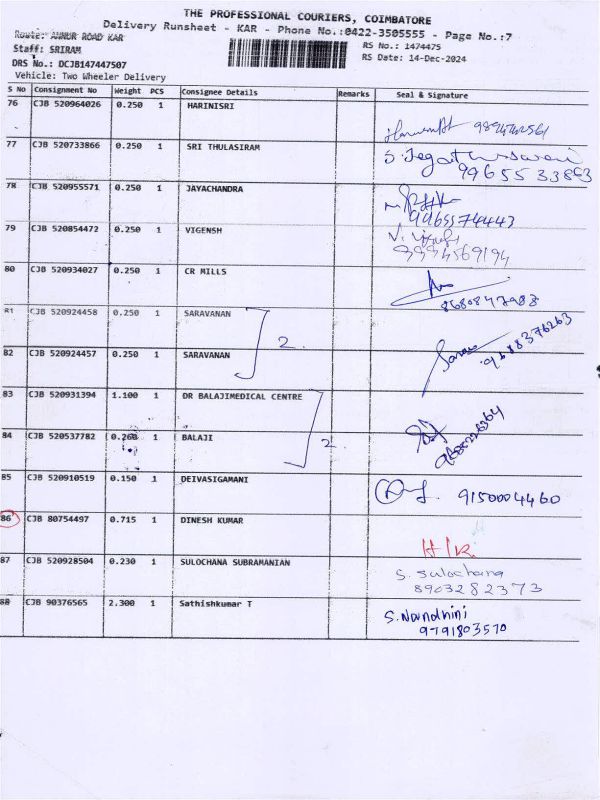 THE PROFESSIONAL COURIERS, COIMBATORE
Delivery Runsheet - KAR - Phone No.:0422-3505555 - Page No.:7
Route: ANNUR ROAD KAR
RS No.: 1474475
Staff: SRIRAM
RS Date: 14-Dec-2024
DRS No.: DCJB147447507
Vehicle: Two Wheeler Delivery
S No Consignment No Weight PCS Consignee Details Remarks Seal & Signature
76 CJB 520964026 0.250 1 HARINISRI
77 CJB 520733866 0.250 1 SRI THULASIRAM
9965533863
78 CJB 520955571 0.250 1 JAYACHANDRA
9965574443
79 CJB 520854472 0.250 1 VIGENSH
9994569194
80 CJB 520934027 0.250 1 CR MILLS
8680847983
81 CJB 520924458 0.250 1 SARAVANAN
2
9688376263
82 CJB 520924457 0.250 1 SARAVANAN
83 CJB 520931394 1.100 1 DR BALAJIMEDICAL CENTRE
84 CJB 520537782 0.260 1 BALAJI
2
85 CJB 520910519 0.150 1 DEIVASIGAMANI
9150004460
86 CJB 80754497 0.715 1 DINESH KUMAR
87 CJB 520928504 0.230 1 SULOCHANA SUBRAMANIAN
S. Sulochana
8903282373
88 CJB 90376565 2.300 1 Sathishkumar T
S. Nandhini
9791803570